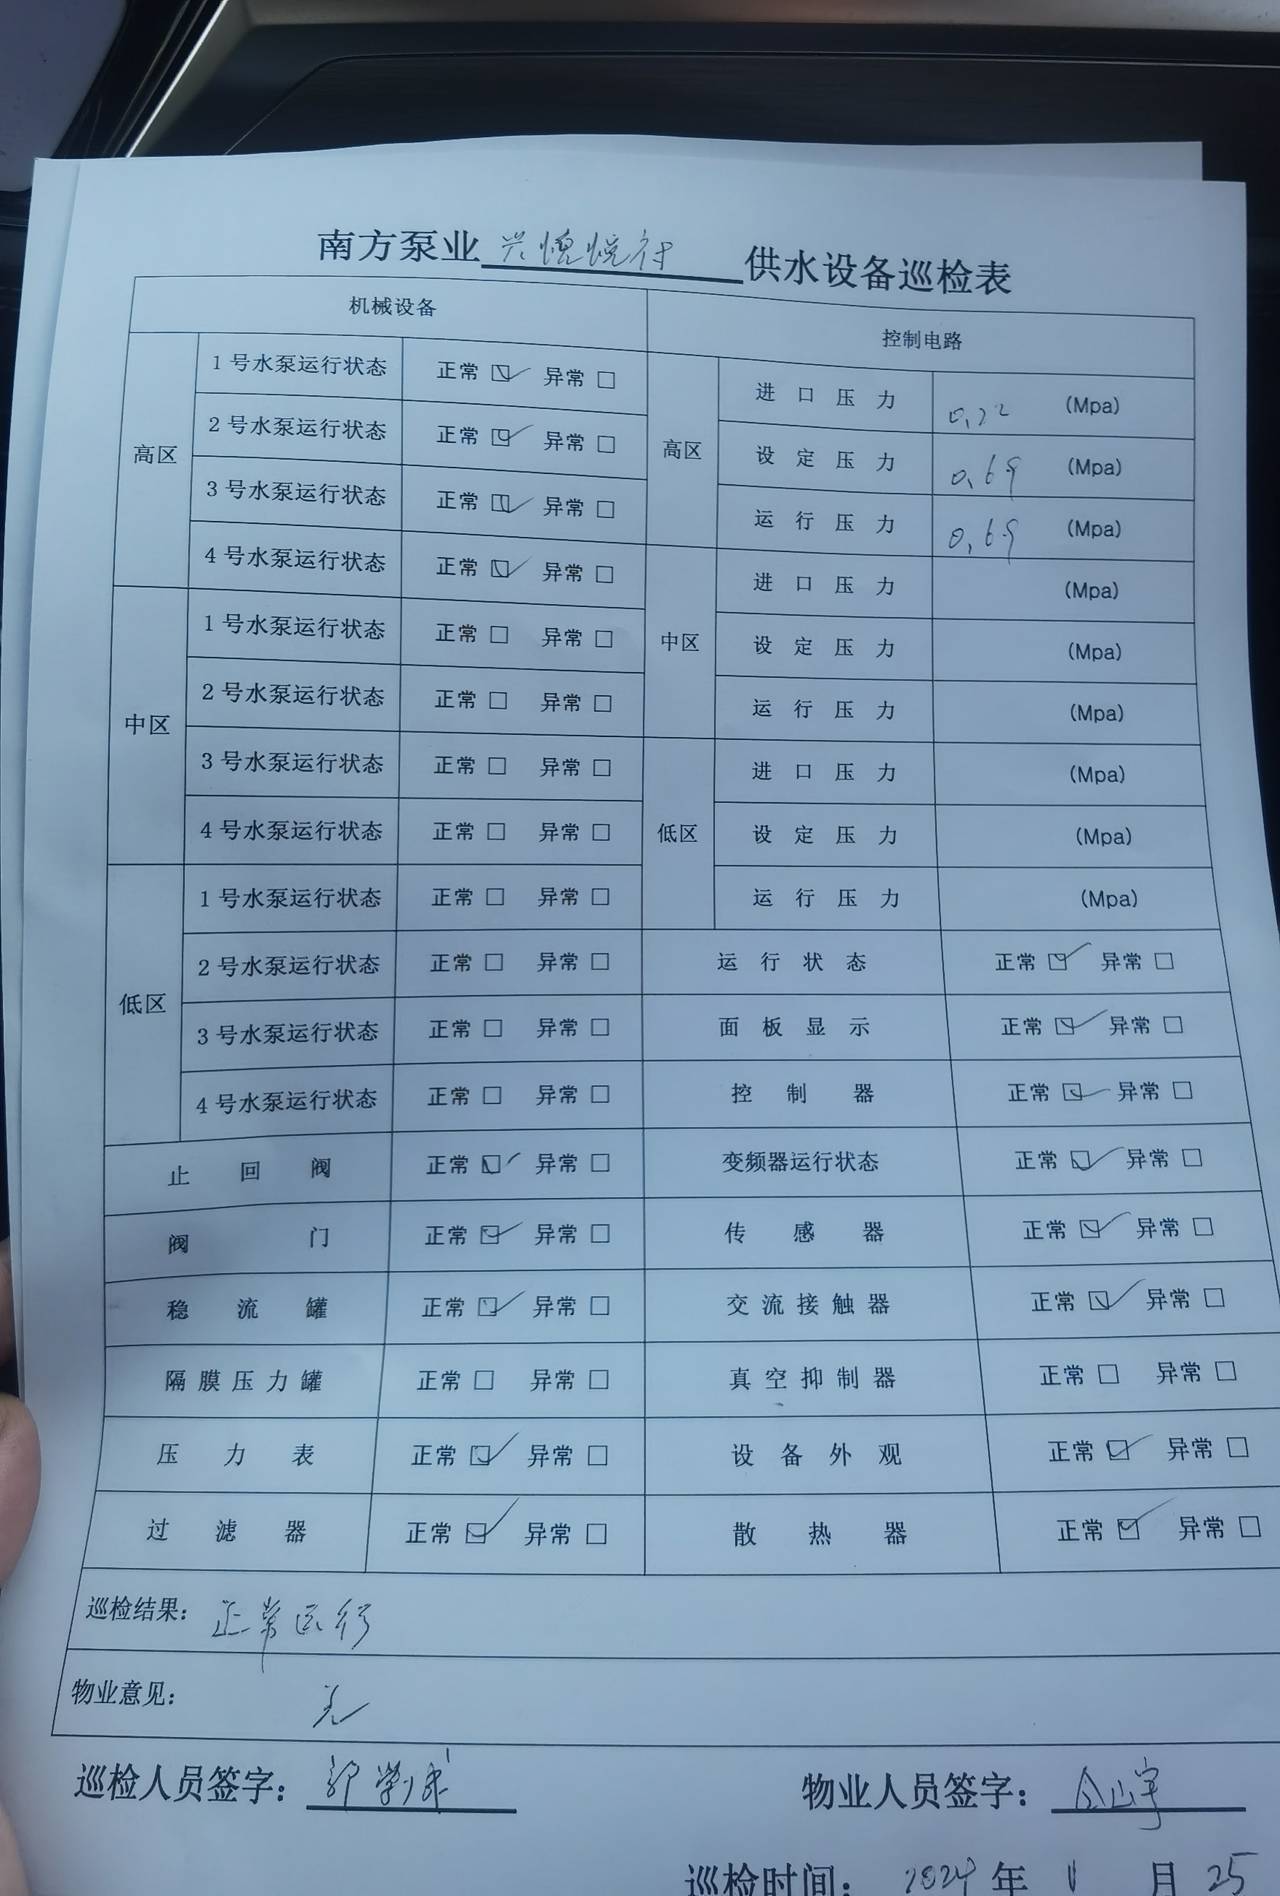 南方泵业 兴憶悦府 供水设备巡检表
机械设备 控制电路
高区 1号水泵运行状态 正常☑ 异常□ 高区 进口压力 0.22 (Mpa)
2号水泵运行状态 正常☑ 异常□ 设定压力 0.69 (Mpa)
3号水泵运行状态 正常☑ 异常□ 运行压力 0.69 (Mpa)
4号水泵运行状态 正常☑ 异常□ 中区 进口压力 (Mpa)
中区 1号水泵运行状态 正常□ 异常□ 设定压力 (Mpa)
2号水泵运行状态 正常□ 异常□ 运行压力 (Mpa)
3号水泵运行状态 正常□ 异常□ 低区 进口压力 (Mpa)
4号水泵运行状态 正常□ 异常□ 设定压力 (Mpa)
低区 1号水泵运行状态 正常□ 异常□ 运行压力 (Mpa)
2号水泵运行状态 正常□ 异常□ 运行状态 正常☑ 异常□
3号水泵运行状态 正常□ 异常□ 面板显示 正常☑ 异常□
4号水泵运行状态 正常□ 异常□ 控制器 正常☑ 异常□
止回阀 正常☑ 异常□ 变频器运行状态 正常☑ 异常□
阀门 正常☑ 异常□ 传感器 正常☑ 异常□
稳流罐 正常☑ 异常□ 交流接触器 正常☑ 异常□
隔膜压力罐 正常□ 异常□ 真空抑制器 正常□ 异常□
压力表 正常☑ 异常□ 设备外观 正常☑ 异常□
过滤器 正常☑ 异常□ 散热器 正常☑ 异常□
巡检结果：正常运行
物业意见：无
巡检人员签字： 物业人员签字：
巡检时间：2024年11月25